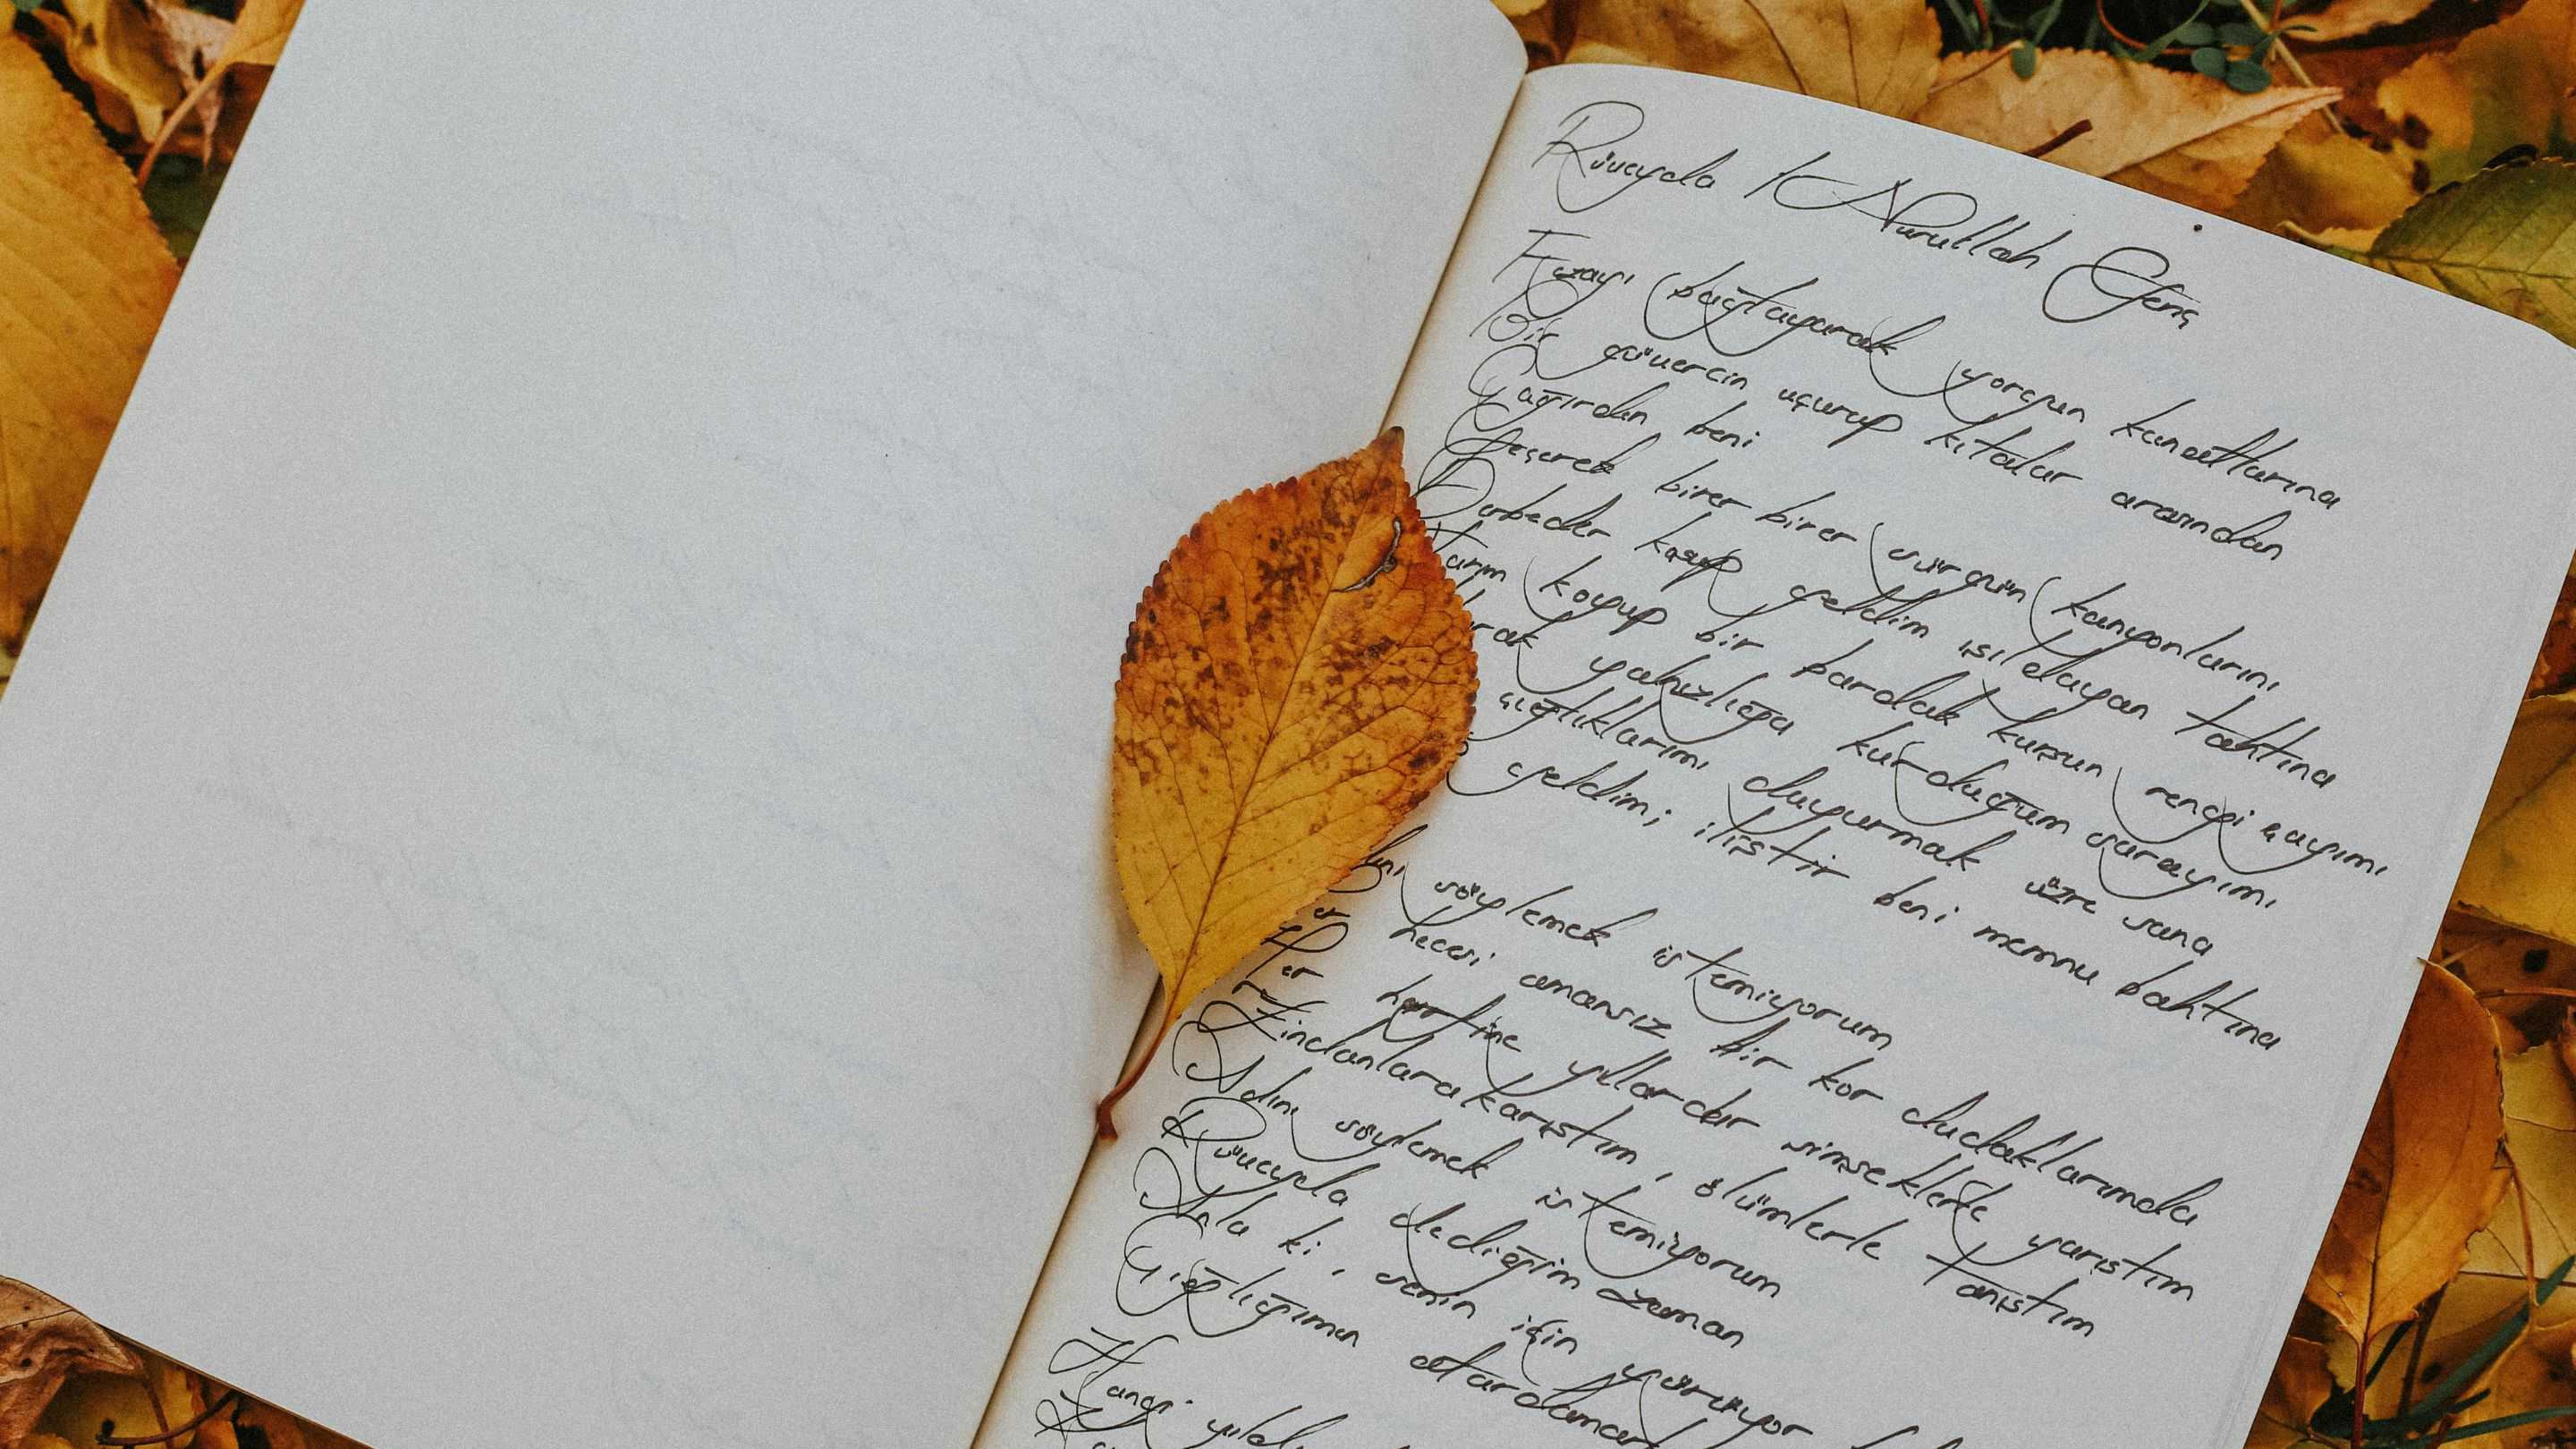 Rüveyda / Nurullah Genç
Fezayı bağlayarak yorgun kanatlarına
Bir güvercin uçurup kıtalar arasından
Çağırdın beni
Geçerek birer birer sürgün kanyonlarını
Derbeder kaçıp geldim ışıldayan tahtına
Yarım koyup bir bardak kurşun rengi çayımı
yalnızlığa kurduğum sarayımı
çığlıklarımı duyurmak üzre sana
geldim; iliştir beni memnu bahtına
söylemek istemiyorum
Her hecesi amansız bir kor dudaklarımda
Her harfine yıllardır şimşeklerle yarıştım
Zindanlara karıştım, ölümlerle tanıştım
Adını söylemek istemiyorum
Rüveyda dediğim zaman
Anla ki, senin için yürüyor
Çığlığımın atardamar
Hangi